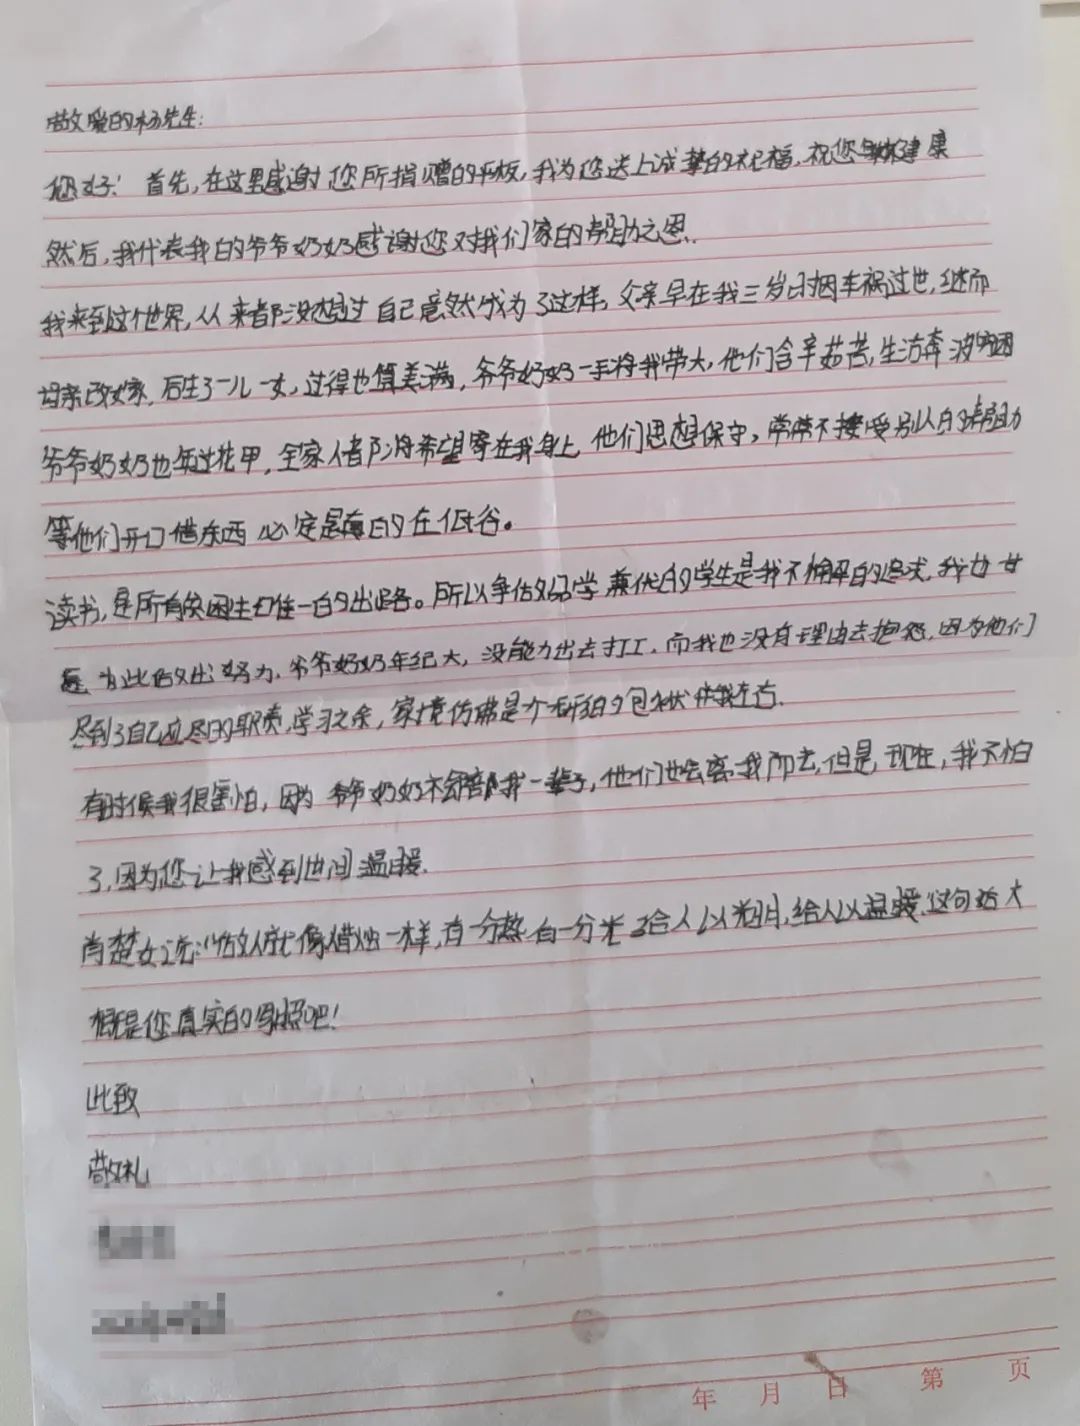 敬爱的杨先生:
您好!首先,在这里感谢您所捐赠的平板,我为您送上诚挚的祝福,祝您身体健康
然后,我代表我的爷爷奶奶感谢您对我们家的帮助之恩.
我来到这个世界,从来都没想过自己竟然成为了这样,父亲早在我三岁时因车祸过世,继而
母亲改嫁,后生了一儿一女,过得也算美满,爷爷奶奶一手将我带大,他们含辛茹苦,生活奔波
爷爷奶奶也年过花甲,全家人都将希望寄在我身上,他们思想保守,常常不接受别人的帮助
等他们开口借东西必定是真的在低谷。
读书,是所有贫困生唯一的出路。所以争做品学兼优的学生是我不懈的追求,我也
为此做出努力,爷爷奶奶年纪大,没能力出去打工,而我也没有理由去抱怨,因为他们
尽到了自己应尽的职责,学习之余,家境仿佛是个无形的包袱
有时候我很害怕,因为爷爷奶奶不会陪我一辈子,他们也会离我而去,但是,现在,我不怕
了,因为您让我感到世间温暖.
肖楚女说:"做人就像蜡烛一样,有一分热有一分光给人以光明,给人以温暖.这句话大
概是您真实的写照吧!
此致
敬礼
年 月 日 第 页